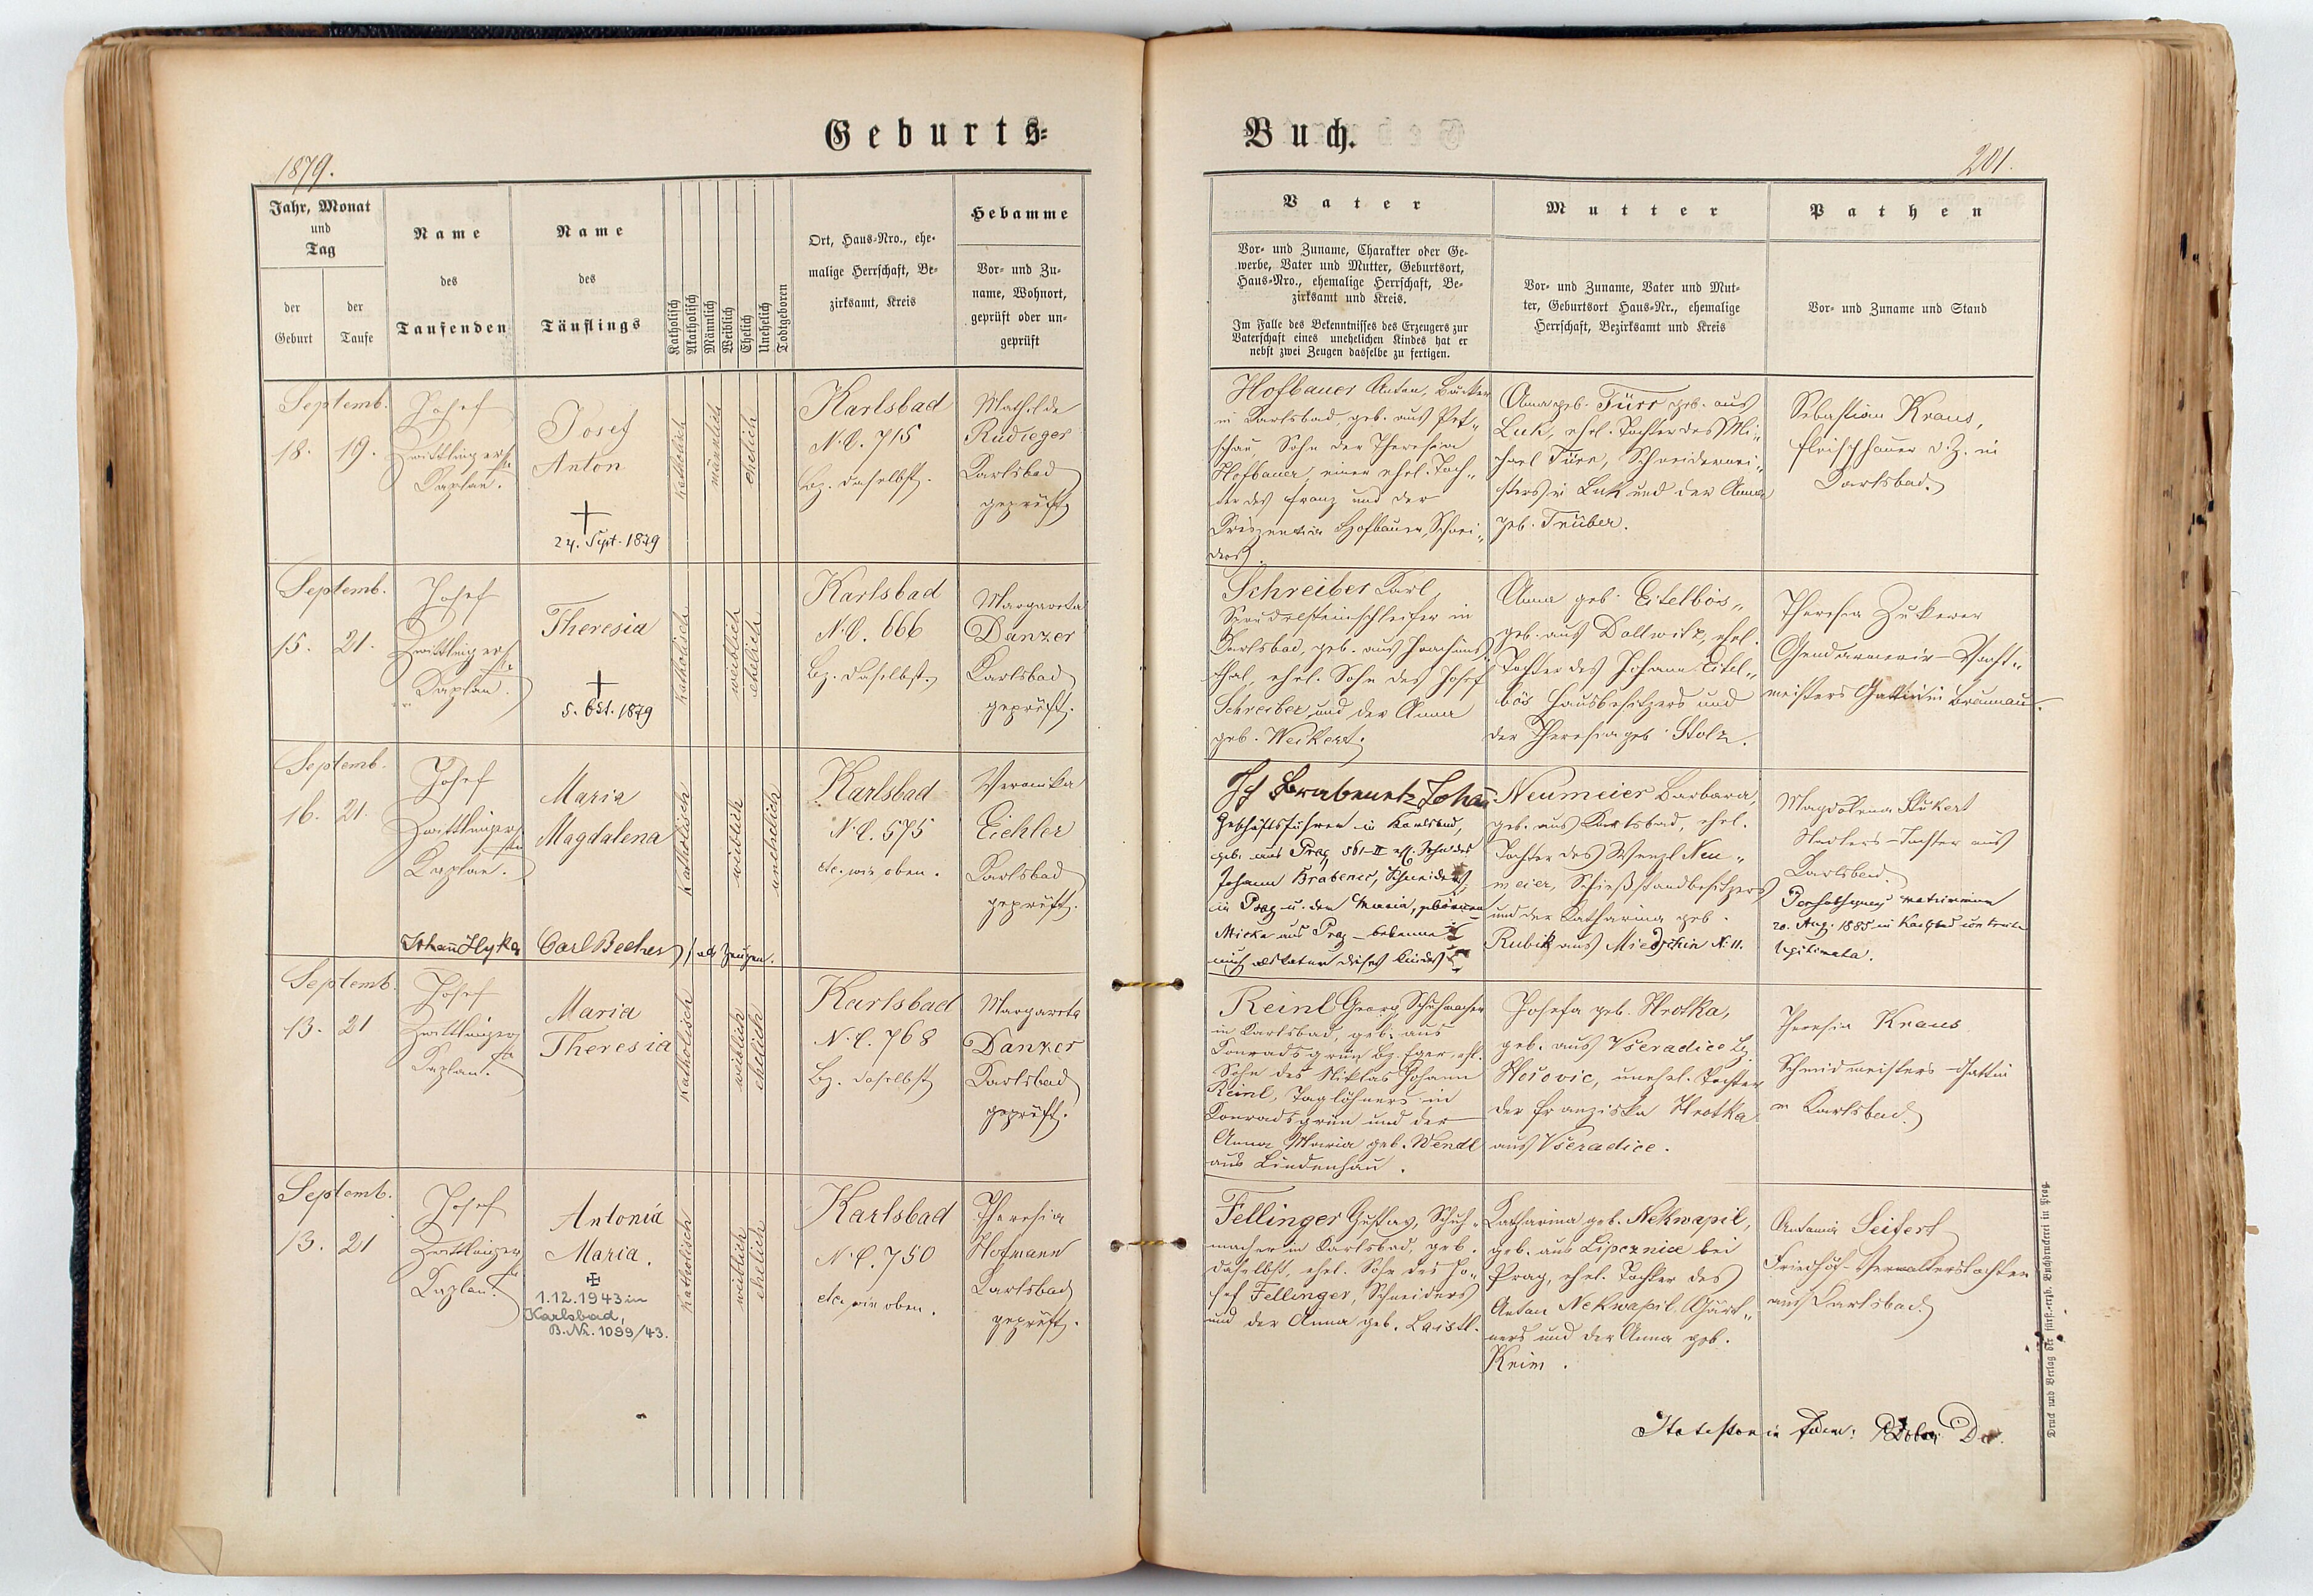 Geburts-
Buch.
1879.
201.
Jahr, Monat
und
Tag
der
Geburt
der
Taufe
Name
des
Taufenden
Name
des
Täuflings
Katholisch
Akatholisch
Männlich
Weiblich
Ehelich
Unehelich
Todtgeboren
Ort, Haus-Nro., ehe-
malige Herrschaft, Be-
zirksamt, Kreis
Hebamme
Vor- und Zu-
name, Wohnort,
geprüft oder un-
geprüft
Vater
Vor- und Zuname, Charakter oder Ge-
werbe, Vater und Mutter, Geburtsort,
Haus-Nro., ehemalige Herrschaft, Be-
zirksamt und Kreis.
Im Falle des Bekenntnisses des Erzeugers zur
Vaterschaft eines unehelichen Kindes hat er
nebst zwei Zeugen dasselbe zu fertigen.
Mutter
Vor- und Zuname, Vater und Mut-
ter, Geburtsort Haus-Nr., ehemalige
Herrschaft, Bezirksamt und Kreis
Pathen
Vor- und Zuname und Stand
Septemb.
18. 19.
Josef
Kaplan.
Josef
Anton
24. Sept. 1879
katholisch
männlich
ehelich
Karlsbad
N.C. 715
Bz. daselbst.
Mathilde
Rudieger
Karlsbad
geprüft
Hofbauer Anton, Bäcker
in Karlsbad, geb. aus Pet-
schau, Sohn der Theresia
Hofbauer, einer ehel. Toch-
ter des Franz und der
Hofbauer, Schnei-
ders.
Anna geb. Fürr geb. aus
Luk, ehel. Tochter des Mi-
chael Fürr, Schneidermei-
sters in Luk und der Anna
geb. Trüber.
Sebastian Kraus,
Fleischhauer d. Z. in
Karlsbad.
Septemb.
15. 21.
Josef
Kaplan.
Theresia
5. Okt. 1879
katholisch
weiblich
ehelich
Karlsbad
N.C. 666
Bz. daselbst.
Margareta
Danzer
Karlsbad
geprüft.
Schreiber Karl,
Sprudelsteinschleifer in
Karlsbad, geb. aus Joachims-
thal, ehel. Sohn des Josef
Schreiber und der Anna
geb. Weikert.
Anna geb. Eitelbös,
geb. aus Dallwitz, ehel.
Tochter des Johann Eitel-
bös Hausbesitzers und
der Theresia geb. Stolz.
Theresia Zukerer
Gendarmerie-Wacht-
meisters Gattin in Braunau.
Septemb.
16. 21.
Josef
Kaplan.
Maria
Magdalena
katholisch
weiblich
unehelich
Karlsbad
N.C. 575
etc. wie oben.
Veronika
Eichler
Karlsbad
geprüft.
Johann
Geschäftsführer in Karlsbad,
geb. aus Prag 561-II
Johann Schneiders
in Prag u. der Maria, geborenen
Micka aus Prag – bekenne
mich als Vater dieses Kindes
Neumeier Barbara,
geb. aus Karlsbad, ehel.
Tochter des Wenzl Neu-
meier, Schießstandbesitzers
und der Katharina geb.
Rubik aus N. 11.
Magdalena
Tochter aus
Karlsbad.
Per subsequens matrimonium
20. Aug. 1885 in Karlsbad
legitimata.
Johann Hyka Carl Becher als Zeugen.
Septemb.
13. 21
Josef
Kaplan.
Maria
Theresia
katholisch
weiblich
ehelich
Karlsbad
N.C. 768
Bz. daselbst
Margareta
Danzer
Karlsbad
geprüft.
Reinl Georg, Schuhmacher
in Karlsbad, geb. aus
Konradsgrün Bz. Eger, ehl.
Sohn des Niklas Johann
Reinl, Taglöhners in
Konradsgrün und der
Anna Maria geb. Wendl
aus Lindenhau.
Josefa geb. Hrotka,
geb. aus Všeradice Bz.
Hořovic, unehel. Tochter
der Franziska Hrotka
aus Všeradice.
Theresia Kraus
Schmidmeisters-Gattin
in Karlsbad.
Septemb.
13. 21
Josef
Kaplan.
Antonia
Maria.
1.12.1943 in
Karlsbad,
B.Nr. 1099/43.
katholisch
weiblich
ehelich
Karlsbad
N.C. 750
etc. wie oben.
Theresia
Hofmann
Karlsbad
geprüft.
Fellinger Gustav, Schuh-
macher in Karlsbad, geb.
daselbst, ehel. Sohn des Jo-
sef Fellinger, Schneiders
und der Anna geb. Laistl.
Katharina geb. Nekwapil,
geb. aus Lipeznice bei
Prag, ehel. Tochter des
Anton Nekwapil, Gärt-
ners und der Anna geb.
Kreim.
Antonia Seifert
Friedhof-Verwalterstochter
aus Karlsbad.
Druck und Verlag der fürst.-erzb. Buchdruckerei in Prag.